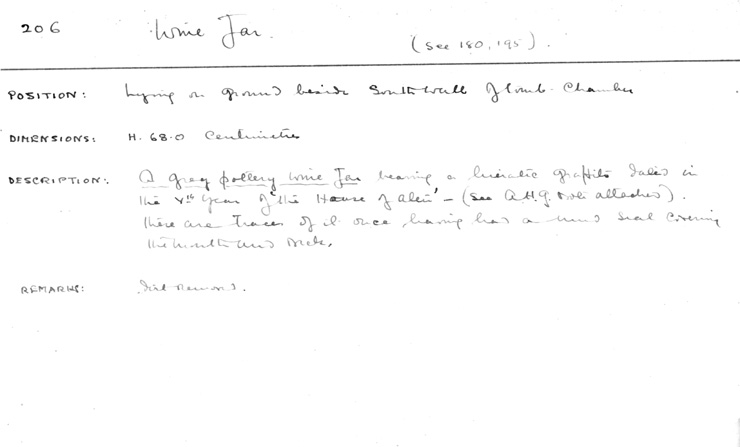 206 Wine Jar.
(see 180, 195).
POSITION: Lying on ground beside South wall of tomb-chamber
DIMENSIONS: H. 68.0 Centimetres
DESCRIPTION: A grey pottery wine Jar bearing a hieratic graffito dated in
the Vth Year of the House of Aten' - (see A.H.G. note attached).
There are traces of it once having had a mud seal covering
the mouth and neck.
REMARKS: